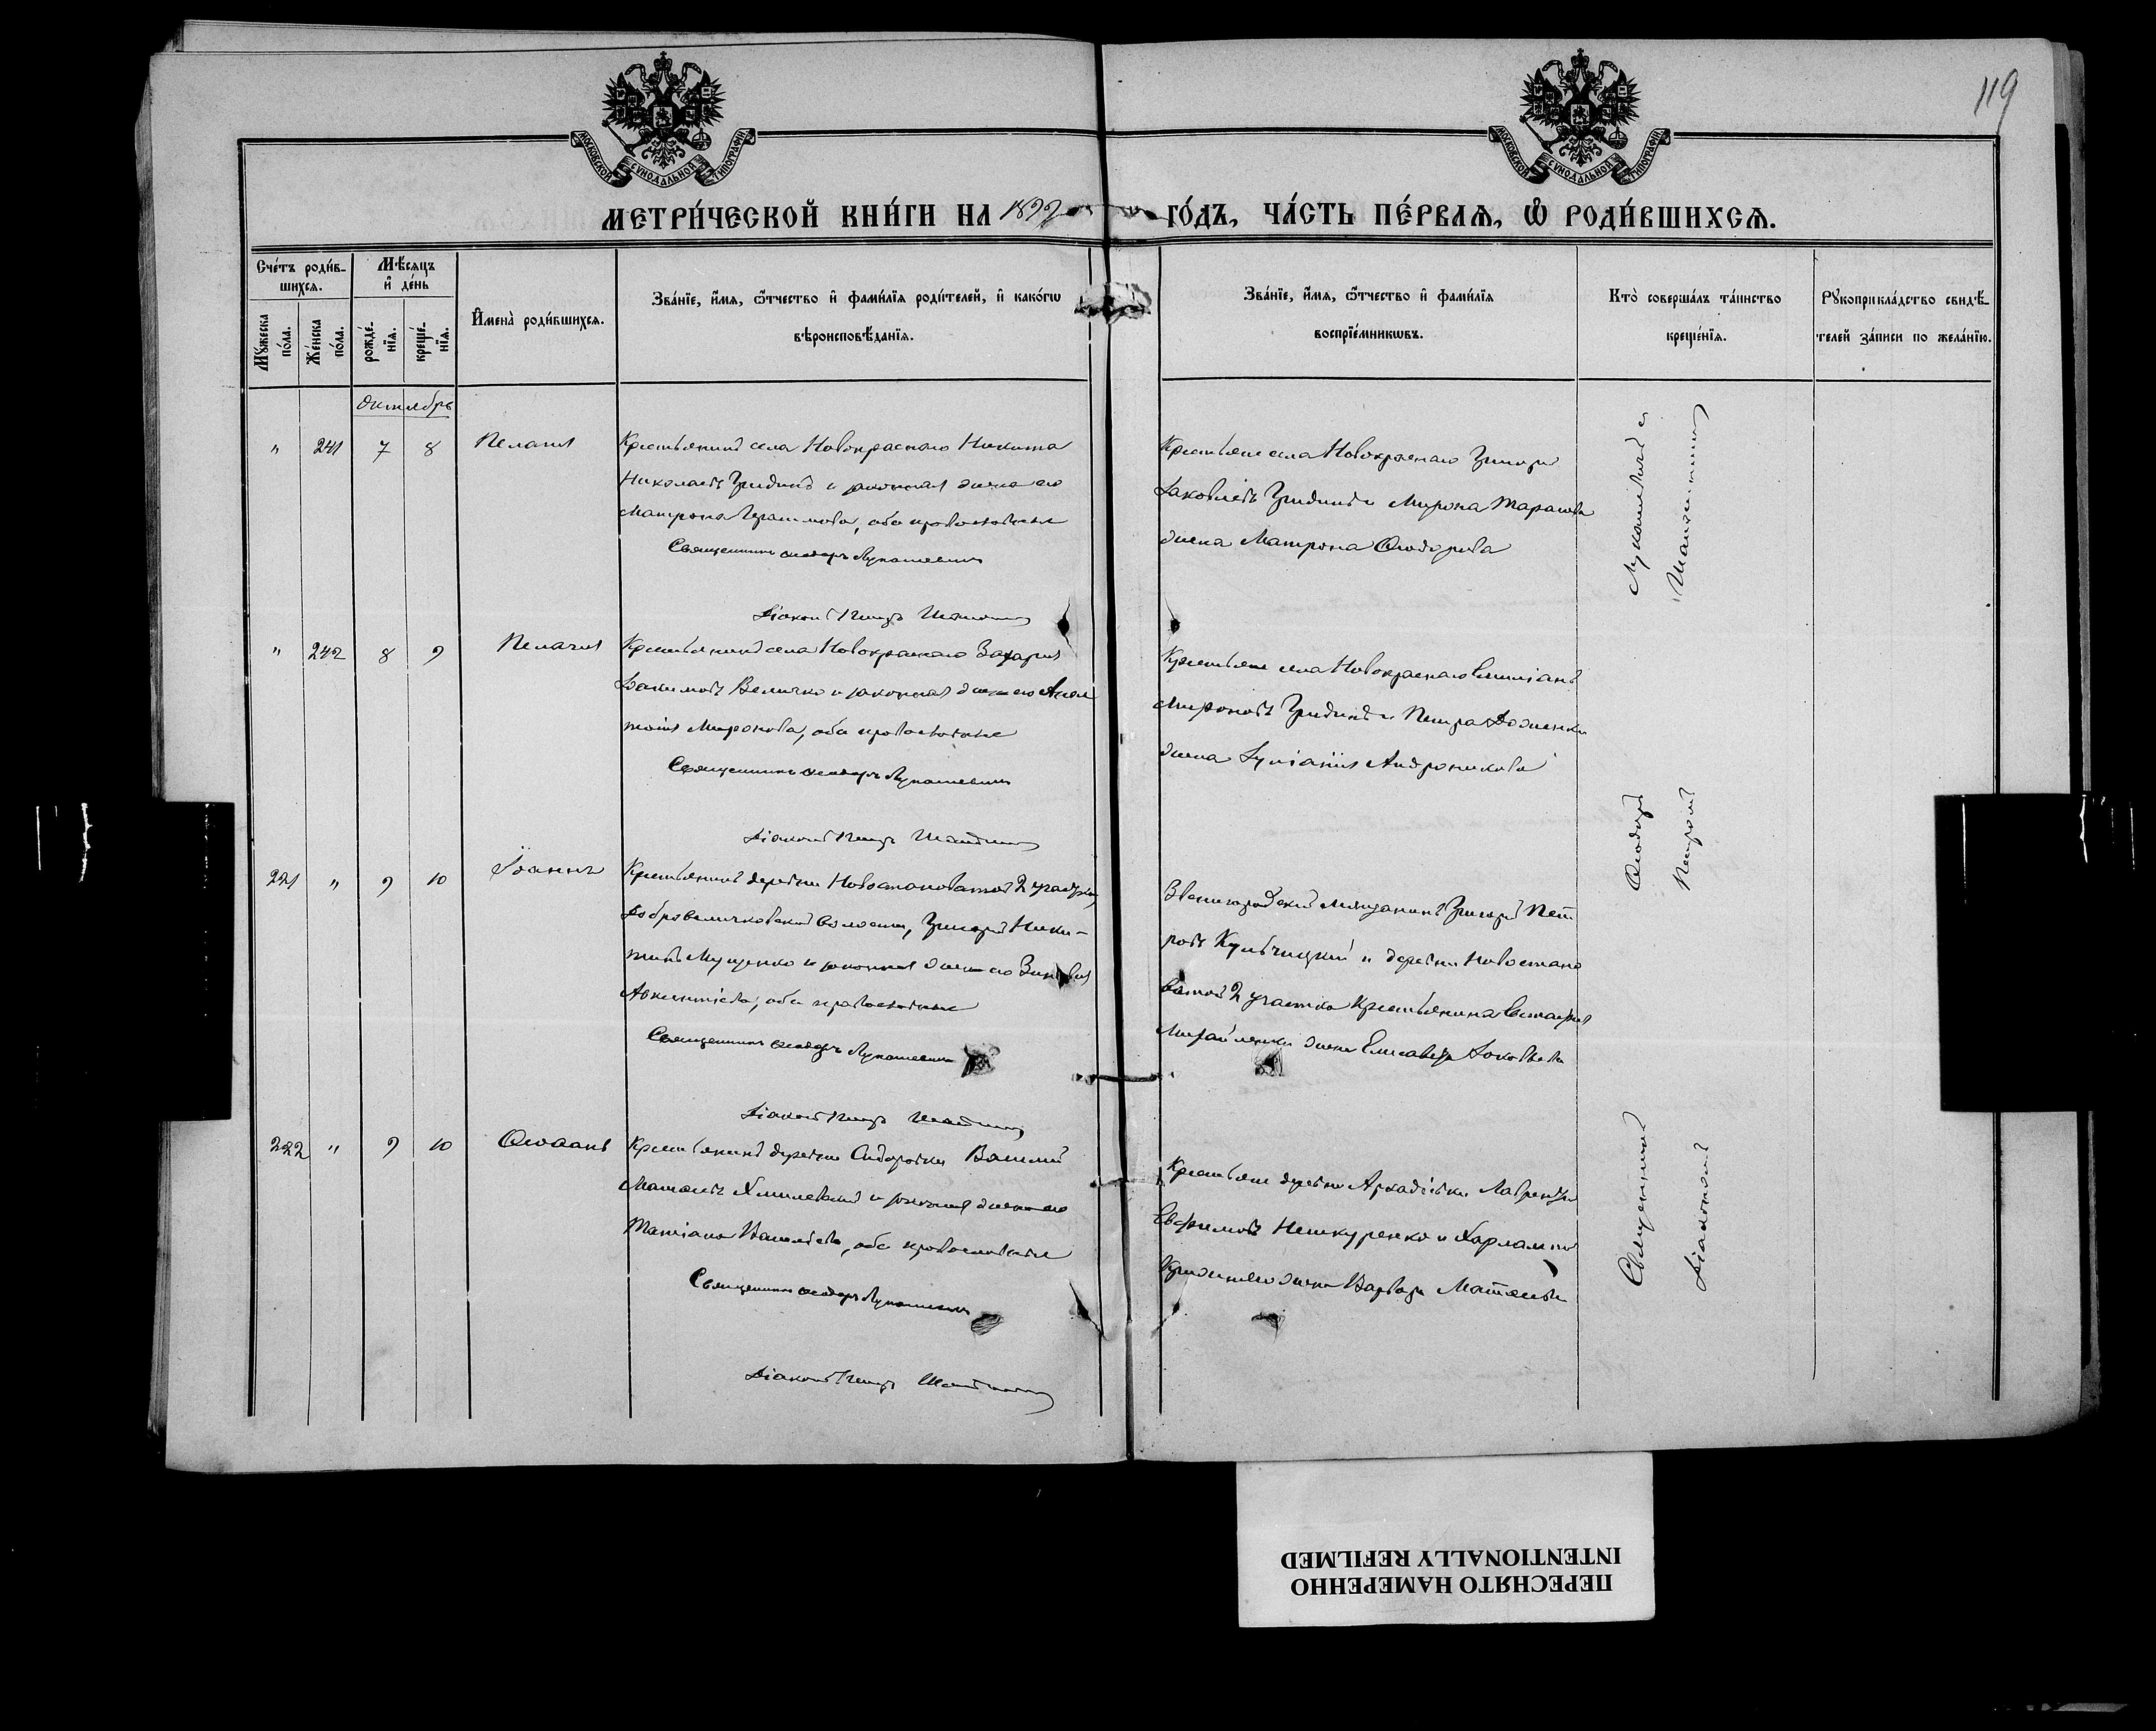 119
МОСКОВСКОЙ СѴНОДАЛЬНОЙ ТИПОГРАФІИ
МОСКОВСКОЙ СѴНОДАЛЬНОЙ ТИПОГРАФІИ
МЕТРИ́ЧЕСКОЙ КНИ́ГИ НА 1899 ГО́ДЪ, ЧА́СТЬ ПЕ́РВАЯ, Ѡ҆ РОДИ́ВШИХСЯ.
Сче́тъ роди́в-
шихся.
Мꙋжеска по́ла.
Же́нска по́ла.
Мѣ́сяцъ
и҆ де́нь
рожде́-
нїя.
креще́-
нїя.
И҆мена̀ роди́вшихся.
Зва́нїе, и҆́мя, ѻ҆́тчество и҆ фами́лїя роди́телей, и҆ како́гѡ
вѣроисповѣ́данїя.
Зва́нїе, и҆́мя, ѻ҆́тчество и҆ фами́лїя
воспрїе́мникѡвъ.
Кто̀ соверша́лъ та́инство
креще́нїя.
Рꙋкоприкла́дство свидѣ́-
телей за́писи по жела́нїю.
Октябрь
" 241 7 8 Пелагія
Крестьянинъ села Новокраснаго Никита
Николаевъ Гридинъ и законная жена его
Матрона Герасимова, оба православные
Священникъ Ѳеодоръ Лукашевичъ
Діаконъ Петръ
Крестьяне села Новокраснаго Григорій
Іаковлевъ Гридинъ и Мирона Тарасова
жена Матрона Ѳеодорова
" 242 8 9 Пелагія
Крестьянинъ села Новокраснаго Захарія
Іоакимовъ Величко и законная жена его Анам
Миронова, оба православные
Священникъ Ѳеодоръ Лукашевичъ
Діаконъ Петръ
Крестьяне села Новокраснаго Емиліанъ
Мироновъ Гридинъ и Петра
жена Іуліанія Андроникова
221 " 9 10 Іоаннъ
Крестьянинъ деревни Новостановатой 2 участка,
Добровеличковской волости, Григорій Ники-
тинъ Мущенко и законная жена его Зиновія
Авксентіева, оба православные
Священникъ Ѳеодоръ Лукашевичъ
Діаконъ Петръ
Звенигородскій мѣщанинъ Григорій Пет
ровъ Кульчицкій и деревни Новостано
ватой 2 участка крестьянина Евстафія
Михайленки жена Елисавета Іаковлева
222 " 9 10
Крестьянинъ деревни Сидоровки Василій
Матѳеевъ Хмилевскій и законная жена его
Татіана Васильева, оба православные
Священникъ Ѳеодоръ Лукашевичъ
Діаконъ Петръ
Крестьяне деревни Аркадіевки Лаврентій
Евфимовъ Нешкуренко и Харлампія
жена Варвара Матѳеева
Священникъ Ѳеодоръ Лукашевичъ съ
Діакономъ Петромъ
ПЕРЕСНЯТО НАМЕРЕННО
INTENTIONALLY REFILMED